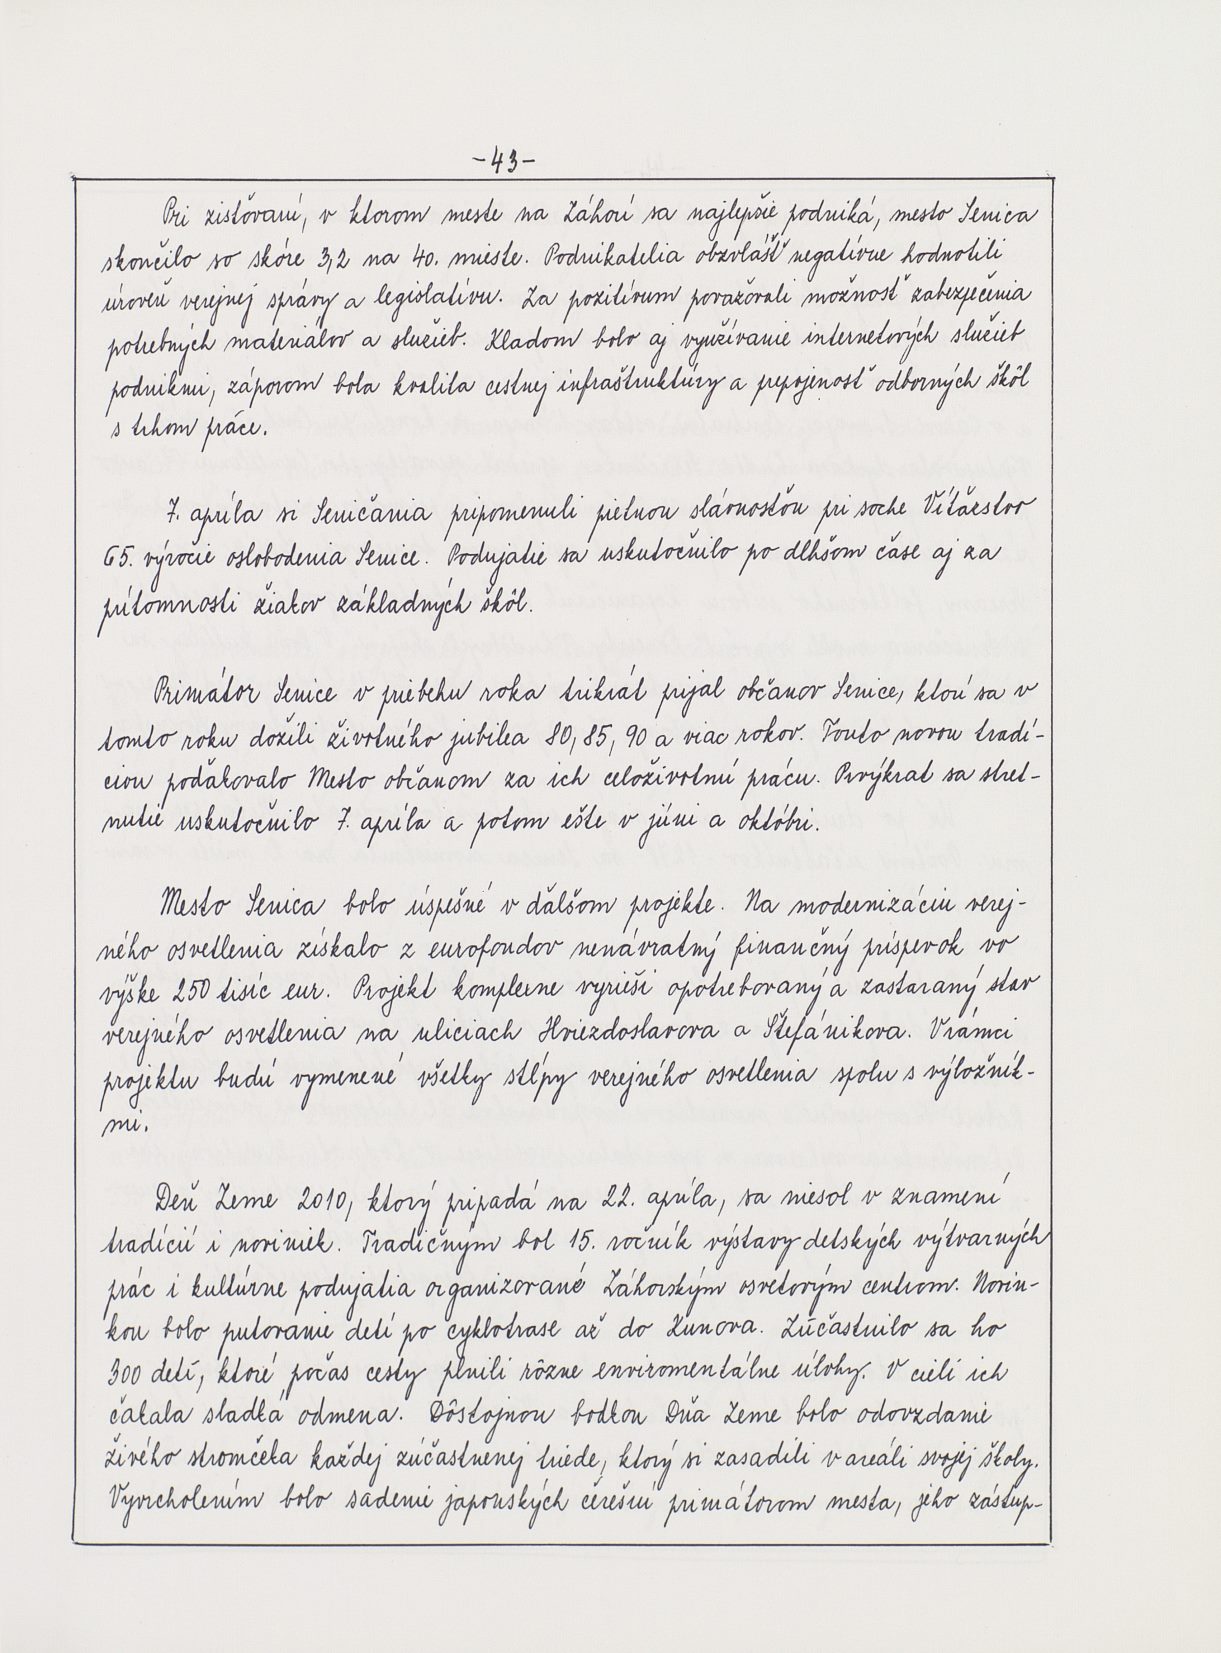 -43-
Pri zisťovaní, v ktorom meste na Záhorí sa najlepšie podniká, mesto Senica
skončilo so skóre 3,2 na 40. mieste. Podnikatelia obzvlášť negatívne hodnotili
úroveň verejnej správy a legislatívu. Za pozitívum považovali možnosť zabezpečenia
potrebných materiálov a služieb. Kladom bolo aj využívanie internetových služieb
podnikmi, záporom bola kvalita cestnej infraštruktúry a prepojenosť odborných škôl
s trhom práce.
7. apríla si Seničania pripomenuli pietnou slávnosťou pri soche Víťazstvo
65. výročie oslobodenia Senice. Podujatie sa uskutočnilo po dlhšom čase aj za
prítomnosti žiakov základných škôl.
Primátor Senice v priebehu roka trikrát prijal občanov Senice, ktorí sa v
tomto roku dožili životného jubilea 80, 85, 90 a viac rokov. Touto novou tradí-
ciou poďakovalo Mesto občanom za ich celoživotnú prácu. Prvýkrat sa stret-
nutie uskutočnilo 7. apríla a potom ešte v júni a októbri.
Mesto Senica bolo úspešné v ďalšom projekte. Na modernizáciu verej-
ného osvetlenia získalo z eurofondov nenávratný finančný príspevok vo
výške 250 tisíc eur. Projekt komplexne vyrieši opotrebovaný a zastaraný stav
verejného osvetlenia na uliciach Hviezdoslavova a Štefánikova. V rámci
projektu budú vymenené všetky stĺpy verejného osvetlenia spolu s výložník-
mi.
Deň Zeme 2010, ktorý pripadá na 22. apríla, sa niesol v znamení
tradícií i noviniek. Tradičným bol 15. ročník výstavy detských výtvarných
prác i kultúrne podujatia organizované Záhorským osvetovým centrom. Novin-
kou bolo putovanie detí po cyklotrase až do Kunova. Zúčastnilo sa ho
300 detí, ktoré počas cesty plnili rôzne enviromentálne úlohy. V cieli ich
čakala sladká odmena. Dôstojnou bodkou Dňa Zeme bolo odovzdanie
živého stromčeka každej zúčastnenej triede, ktorý si zasadili v areáli svojej školy.
Vyvrcholením bolo sadenie japonských čerešní primátorom mesta, jeho zástup-